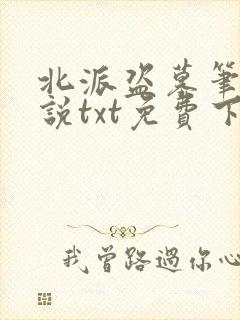 北派盜墓筆
說txt免費下
我曾路過你心